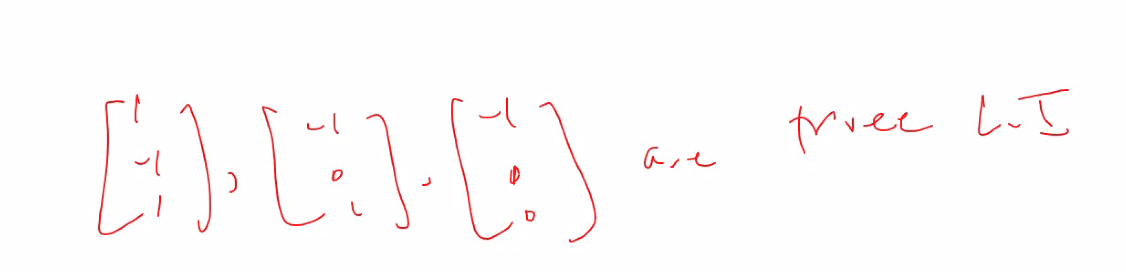 [1 -1 1], [-1 0 1], [-1 1 0] are three L.I